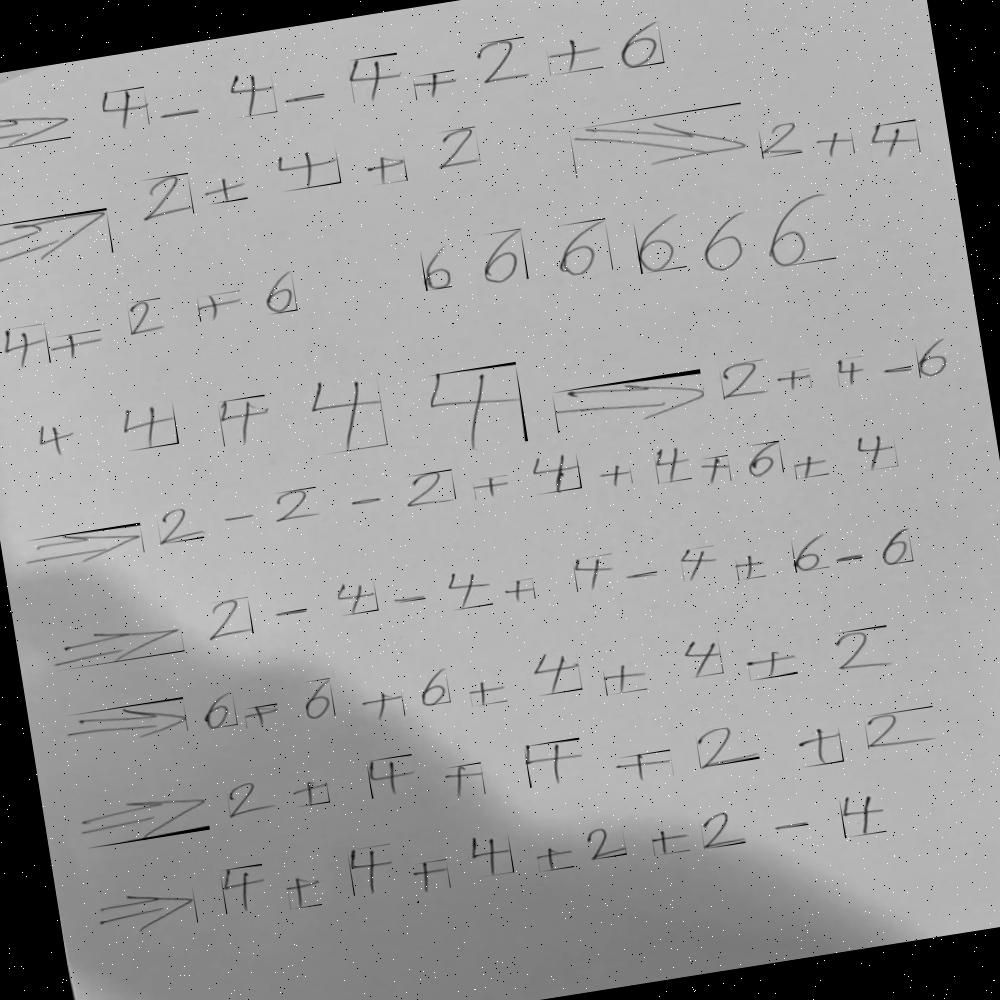 ⇒ 4 - 4 - 4 + 2 + 6
⇒ 2 + 4 + 2 ⇒ 2 + 4
4 + 2 + 6 6 6 6 6 6 6
4 4 4 4 4 ⇒ 2 + 4 - 6
⇒ 2 - 2 - 2 + 4 + 4 + 6 + 4
⇒ 2 - 4 - 4 + 4 - 4 + 6 - 6
⇒ 6 + 6 + 6 + 4 + 4 + 2
⇒ 2 + 4 + 4 + 2 + 2
⇒ 4 + 4 + 4 + 2 + 2 - 4